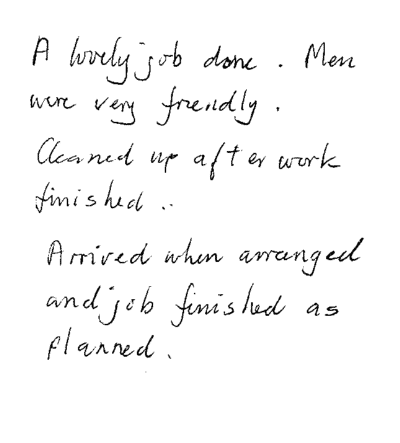 A lovely job done . Men
were very friendly .
Cleaned up after work
finished ..
Arrived when arranged
and job finished as
planned .